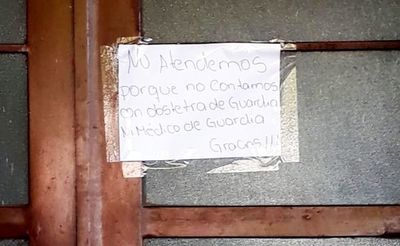 No Atendemos
porque no Contamos
con obstetra de Guardia
Ni Médico de Guardia
Gracias!!!